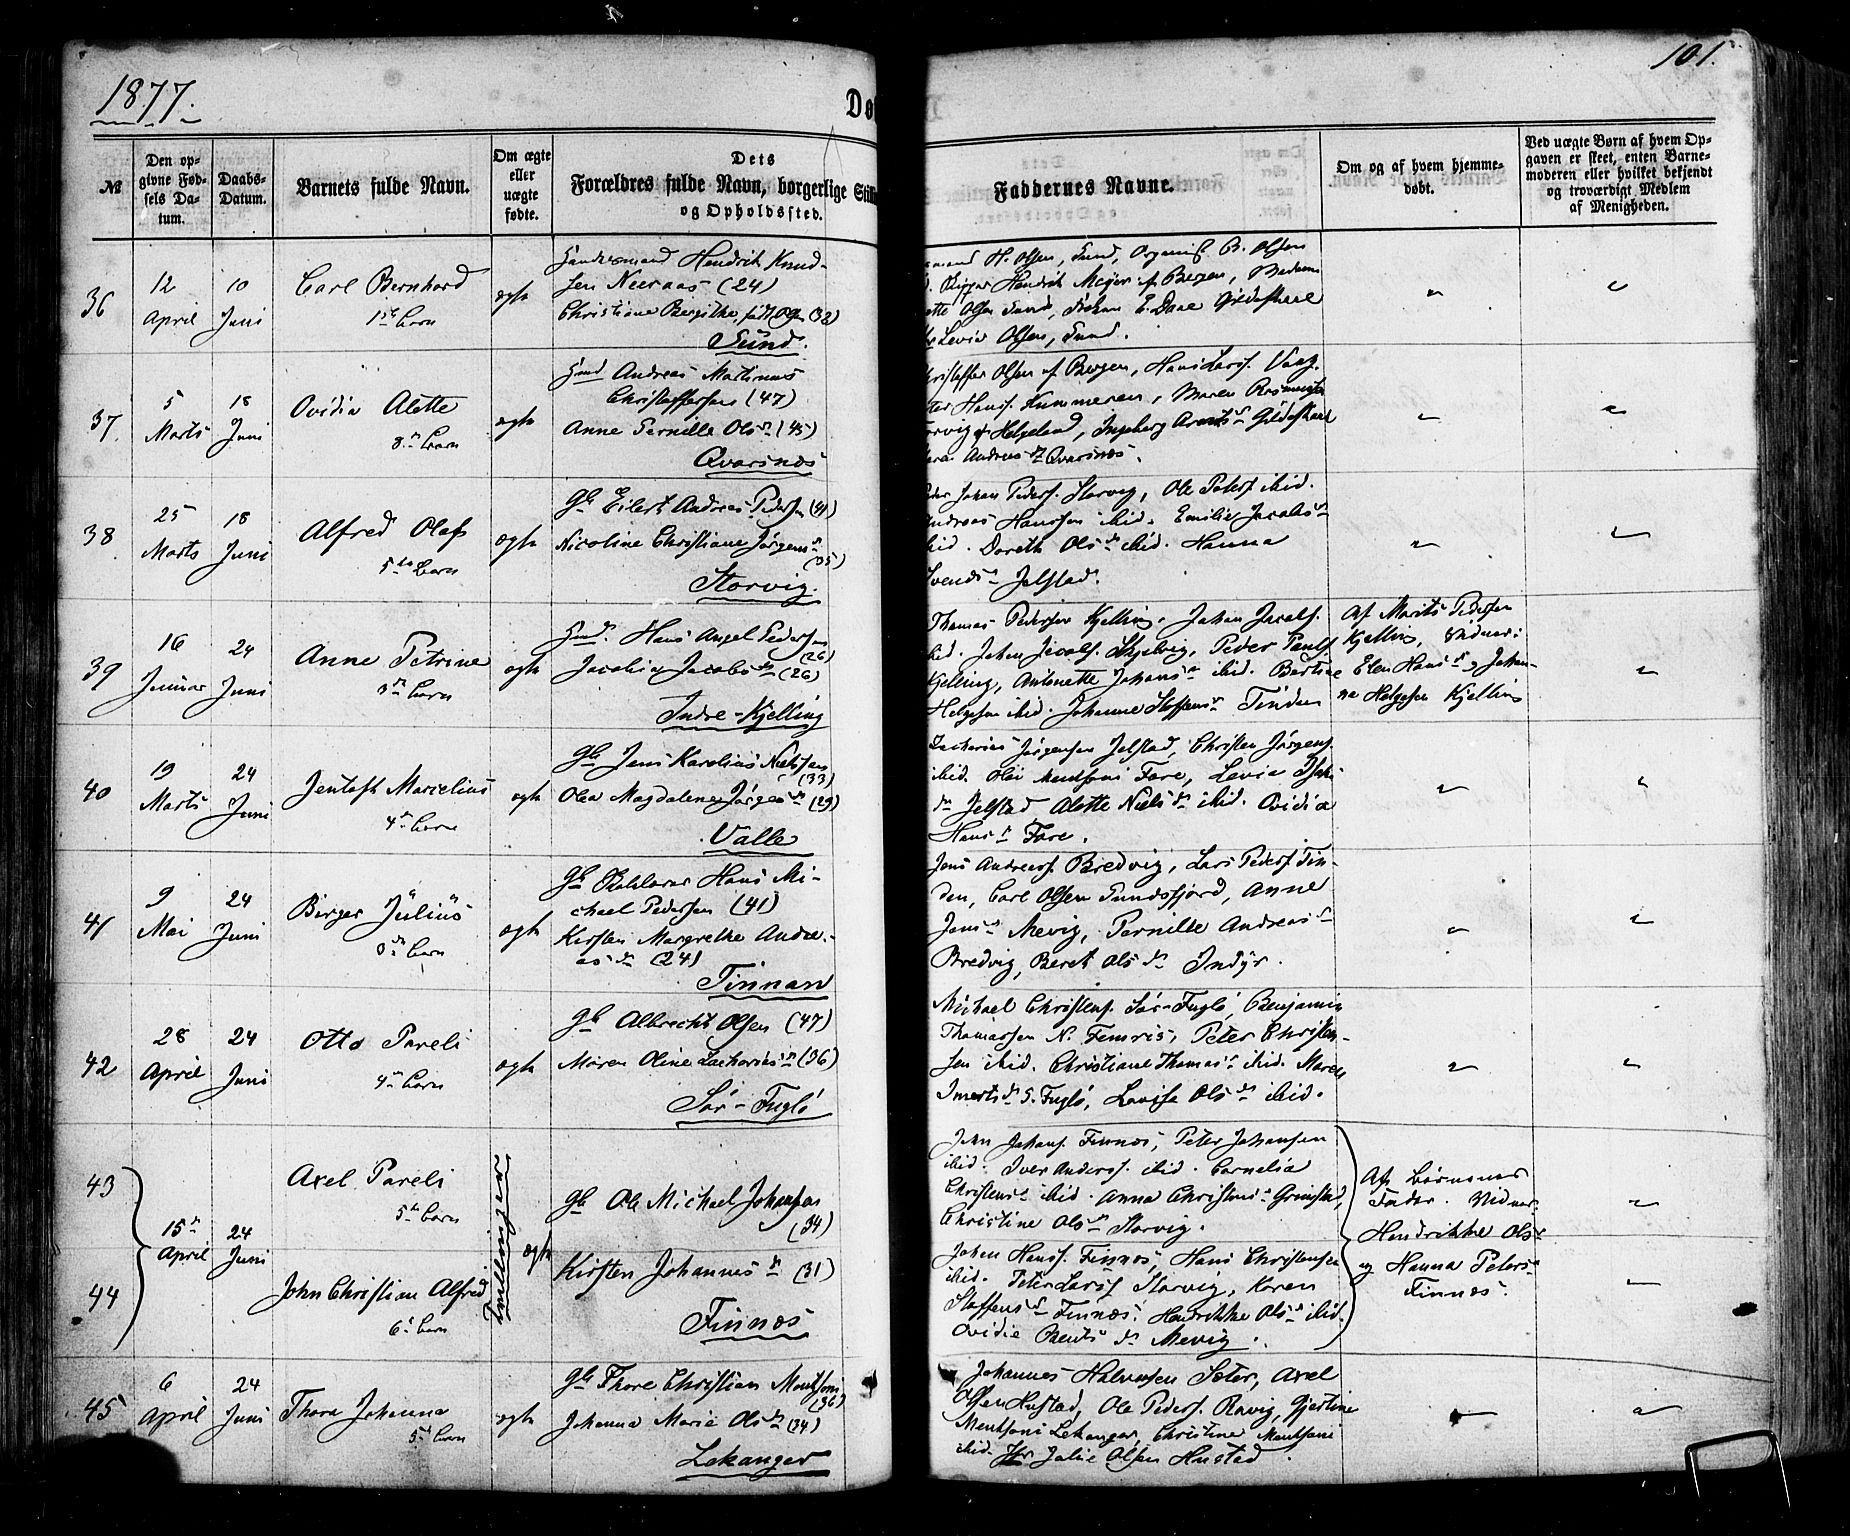 1877.
101.
Dø
№
Den op-
givne Fød-
sels Da-
tum.
Daabs-
Datum.
Barnets fulde Navn.
Om ægte
eller
uægte
fødte.
Dets
Forældres fulde Navn, borgerlige Still
og Opholdssted.
Faddernes Navne.
Om og af hvem hjemme-
døbt.
Ved uægte Børn af hvem Op-
gaven er skeet, enten Barne-
moderen eller hvilket bekjendt
og troværdigt Medlem
af Menigheden.
36
12
April
10
Juni
Carl Bernhard
1ste barn
ægte
Handelsmand Hendrik Knud-
sen Neeraas (24)
Christiane Bergithe, født Olsen (32)
Sund.
H. Olsen, Sund, Organist B. Olsen
Hendrik Meyer af Bergen, Madam
Olsen Sund, Frøken E. Daae Gildeskaal
Levia Olsen, Sund.
37.
5
Marts
18
Juni
Ovidia Alette
8de barn
ægte
Gmd Andreas Mathinus
Christoffersen (47)
Anne Pernille Olsdr (45)
Qvarsnæs
Christoffer Olsen af Bergen, Hans Larss. Vaag
Hanss. Kummeren, Maren Rasmusdtr
af Helgeland, Ingeborg Arntsdr Gildeskaal
Andreasdr Qvarsnæs.
38
25
Marts
18
Juni
Alfred Olaf
5te barn
ægte
Gb Eilert Andreas Pedersen (41)
Nicoline Christiane Jørgensdr
(35)
Storvig.
Peder Johan Peders. Storvig, Ole Peters ibid.
Andreas Hanssen ibid. Emilie Jacobsdr
ibid. Doreth Olsdr ibid. Hanna
Svendsdr Jelstad.
39
16
Januar
24
Juni
Anne Petrine
3die barn
ægte
Gmd. Hans Angel Pedersen
(26)
Jacobia Jacobsdr (26)
Indre-Kjelling
Thomas Pedersen Kjelling, Johan Jacobs.
ibid. Johan Jacobs. Skjelvig, Peder Pauls
Kjelling, Antonette Johansdr ibid. Bertine
Helgesen ibid. Johanne Steffensdr Tinden
Af Marits Pedersen
Kjelling, Vidner:
Elen Hansdr og Johan-
na Helgesen Kjelling
40
19
Marts
24
Juni
Jentoft Marcelius
4de barn
ægte
Gb Jens Karolius Nielssen
(33)
Olea Magdalena Jørgensdr (29)
Valle
Zacharias Jørgensen Jelstad, Christen Jørgens.
ibid. Olai Mentsoni Fore, Levia Isak-
dr Jelstad Alette Nielsdr ibid. Ovidia
Hansdr Fore.
41
9
Mai
24
Juni
Birger Julius
3die barn
ægte
Gb Skolelærer Hans Mi-
chael Pedersen (41)
Kirsten Margrethe Andre-
asdr (24)
Tinnan
Jens Andreass. Bredvig, Lars Peders Tin-
den, Carl Olsen Sundsfjord, Anne
Jensdr Mevig, Pernille Andreasdr
Bredvig, Beret Olsdr Indyr.
42
28
April
24
Juni
Otto Pareli
4de barn
ægte
Gb Albrecht Olsen (47)
Maren Oline Zachariasdr (36)
Sør-Fuglø
Michael Christens. Sør-Fuglø, Benjamin
Thomassen N. Femris, Peter Christen-
sen ibid. Christiane Thomasdr ibid. Maren
Imertsdr S. Fuglø, Lovise Olsdr ibid.
43
15de
April
24
Juni
Axel Pareli
5te barn
Tvillinger
ægte
Gb Ole Michael Johansen
(34)
Kirsten Johannesdr (31)
Finnæs
John Johans. Finnæs, Peter Johansen
ibid. Iver Anderss. ibid. Cornelia
Christensdr ibid. Anna Christensdr Grimstad,
Christine Olsdr Storvig.
Af Børnenes
Fader. Vidner:
Hendrikke Olsdr
og Hanna Petersdr
Finnæs.
44
John Christian Alfred
6te barn
Johan Hanss. Finnæs, Hans Christensen
ibid. Peter Larss Storvig, Karen
Steffensdr Finnæs, Hendrikke Olsdr ibid.
Ovidie Bentsdr Mevig.
45
6
April
24
Juni
Thora Johanna
5te barn
ægte
Gb Thore Christian Mentsoni
(36)
Johanna Marie Olsdr (34)
Lekanger
Johannes Halvorsen Sæter, Axel
Olsen Hustad, Ole Peders. Ravig, Gjertine
Mentsoni Lekanger, Christine Mentsoni
ibid. Julie Olsen Hustad.